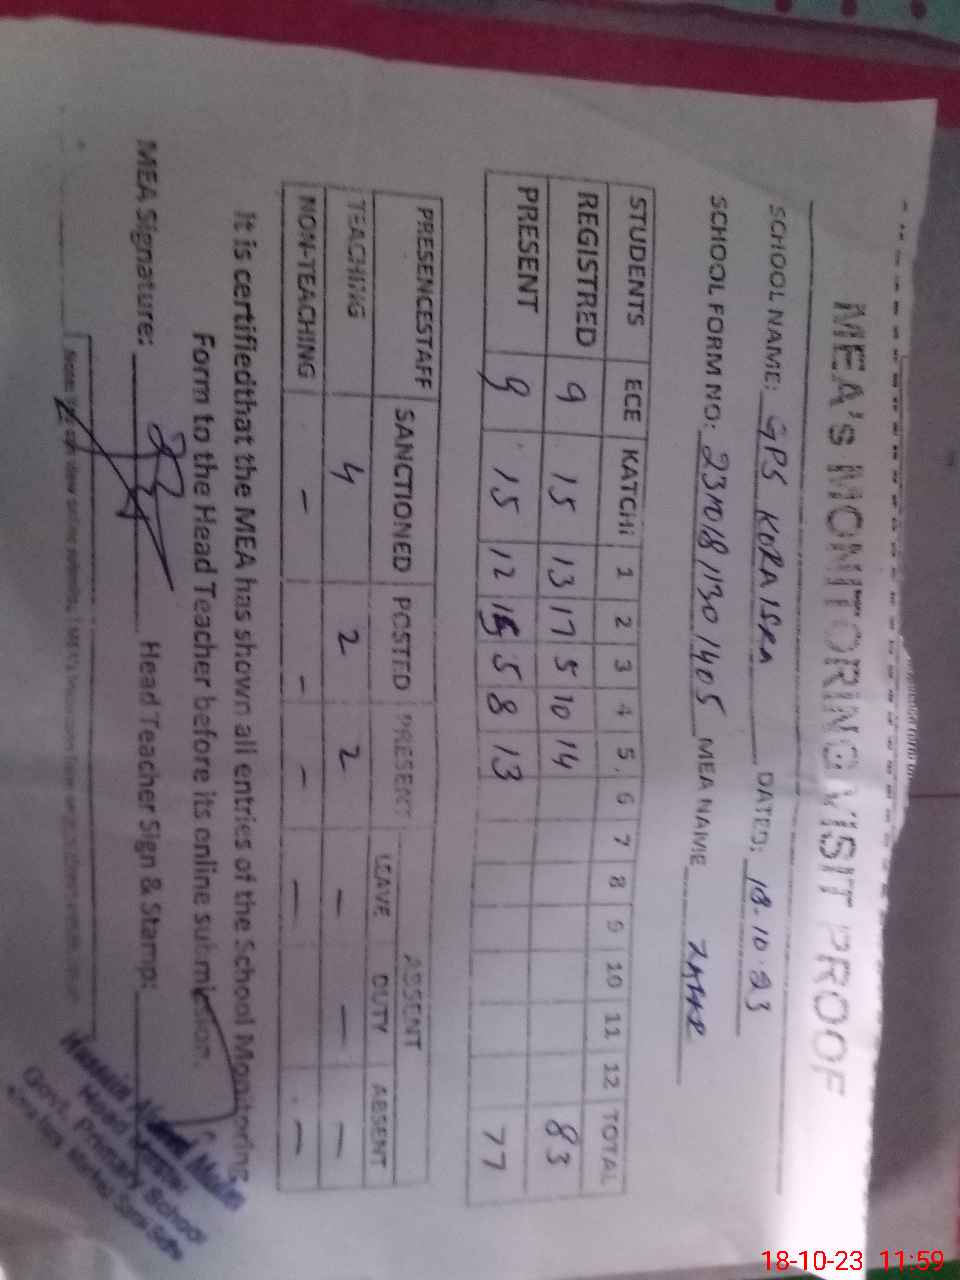 MEA's MONITORING VISIT PROOF
SCHOOL NAME: GPS KORAISRA DATED: 18.10.23
SCHOOL FORM NO: MEA NAME ZAHIR
STUDENTS ECE KATCHI 1 2 3 4 5 6 7 8 9 10 11 12 TOTAL
REGISTRED 9 15 13 17 5 10 14 83
PRESENT 9 15 12 15 5 8 13 77
PRESENCESTAFF SANCTIONED POSTED PRESENT ABSENT
LEAVE DUTY ABSENT
TEACHING 4 2 2 - - -
NON-TEACHING - - - - - -
It is certifiedthat the MEA has shown all entries of the School Monitoring
Form to the Head Teacher before its online submission.
MEA Signature: Head Teacher Sign & Stamp:
Head
Govt. Primary School
18-10-23 11:59